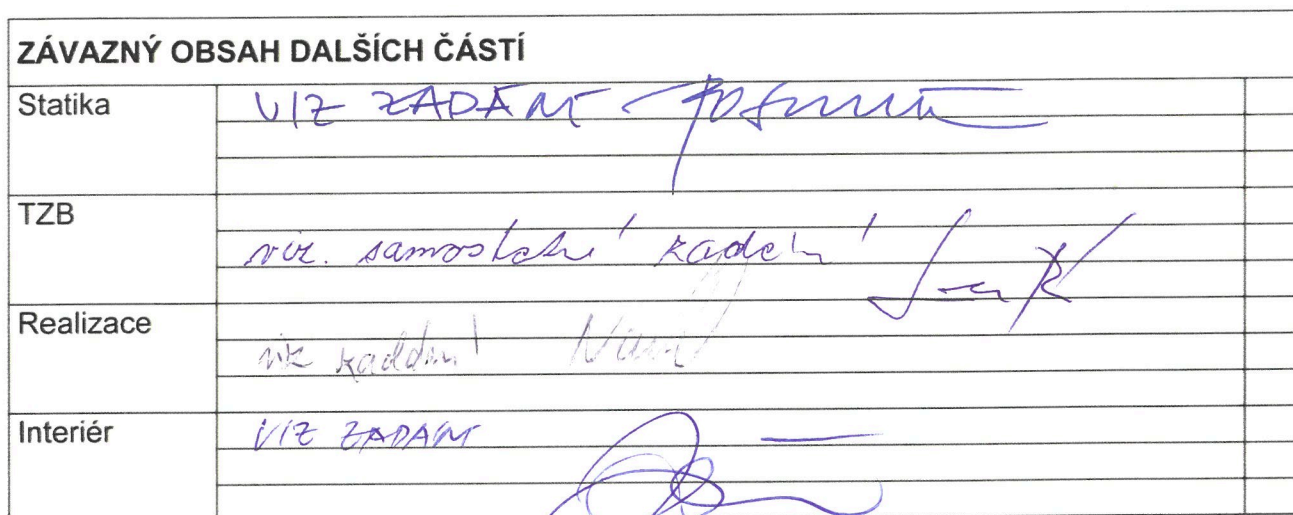 ZÁVAZNÝ OBSAH DALŠÍCH ČÁSTÍ
Statika VIZ ZADÁNÍ
TZB
viz. samostatné zadání
Realizace
viz zadání
Interiér VIZ ZADÁNÍ